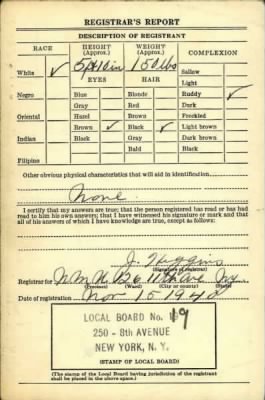 REGISTRAR'S REPORT
DESCRIPTION OF REGISTRANT
RACE HEIGHT (Approx.) WEIGHT (Approx.) COMPLEXION
White ✓ 5ft 10in 150 lbs Sallow
EYES HAIR Light
Negro Blue Blonde Ruddy ✓
Gray Red Dark
Oriental Hazel Brown Freckled
Brown ✓ Black ✓ Light brown
Indian Black Gray Dark brown
Bald Black
Filipino
Other obvious physical characteristics that will aid in identification
None
I certify that my answers are true; that the person registered has read or has had
read to him his own answers; that I have witnessed his signature or mark and that
all of his answers of which I have knowledge are true, except as follows:
J. Higgins
(Signature of registrar)
Registrar for N.Y.
(Precinct) (Ward) (City or county) (State)
Date of registration Nov 15 1940
LOCAL BOARD No. 19
250 - 8th AVENUE
NEW YORK, N. Y.
(STAMP OF LOCAL BOARD)
(The stamp of the Local Board having jurisdiction of the registrant
shall be placed in the above space.)